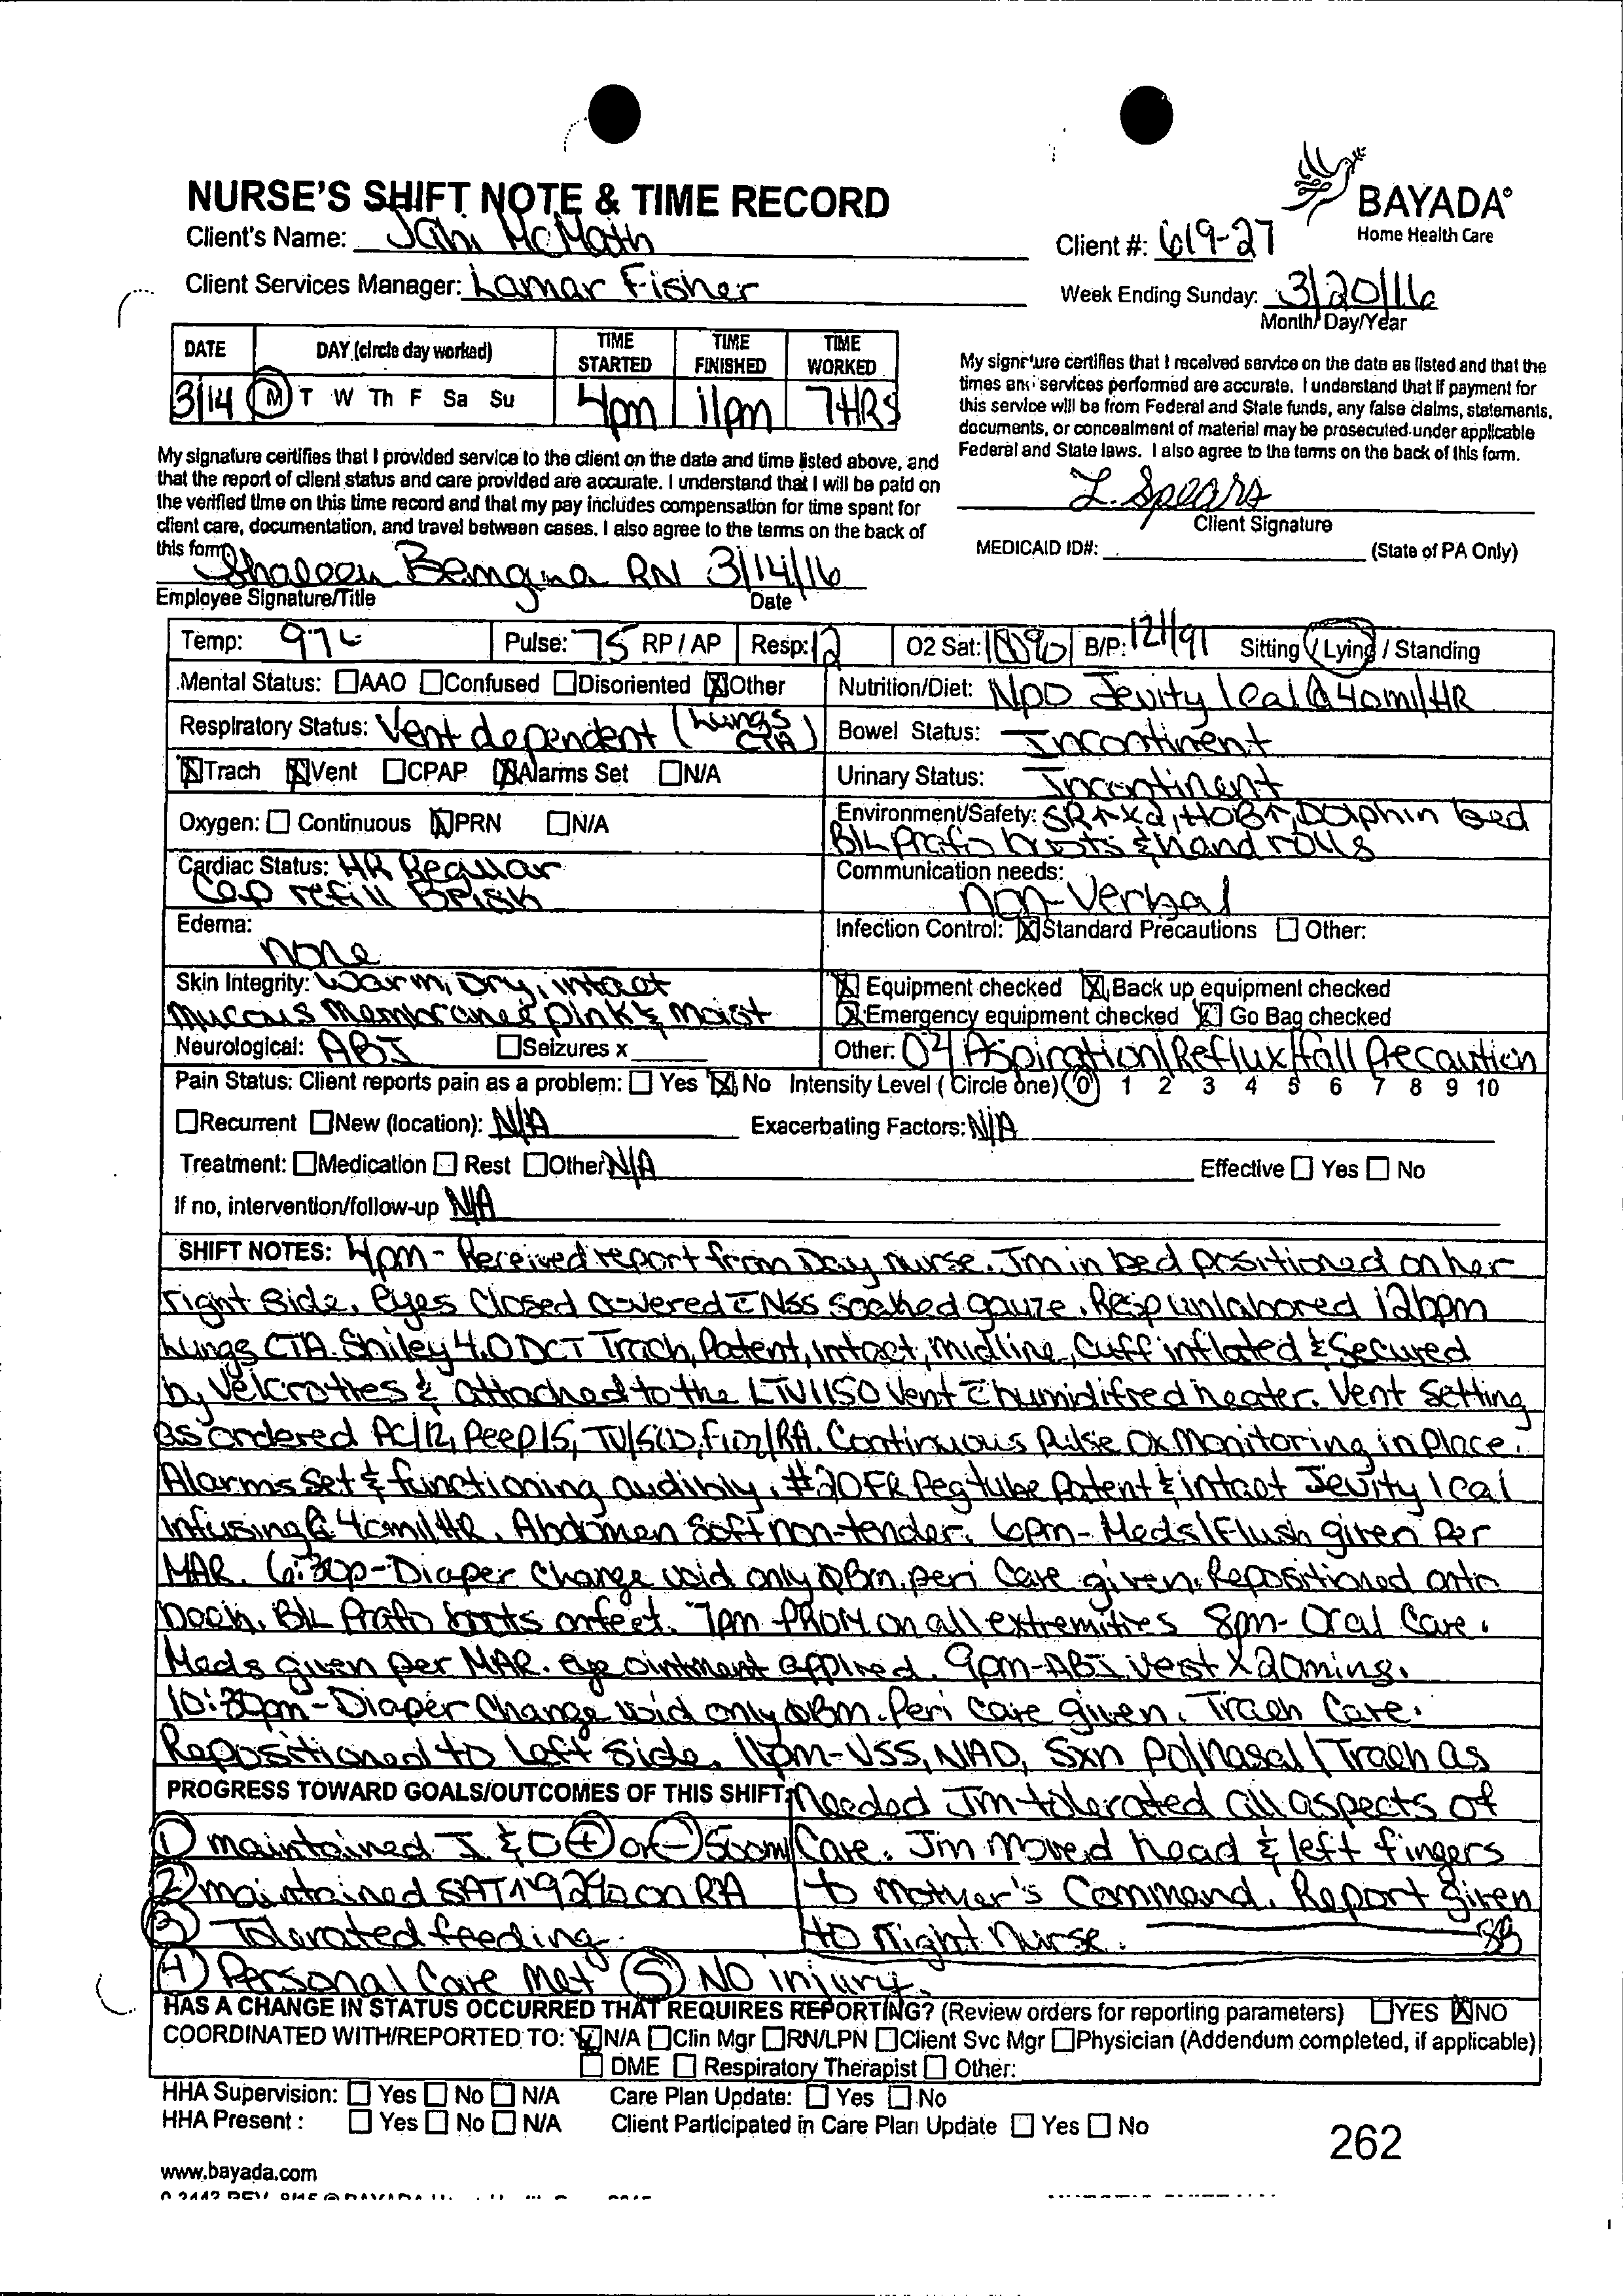 NURSE'S SHIFT NOTE & TIME RECORD
BAYADA
Home Health Care
Client's Name: Jahi McMath
Client #: 619-27
Client Services Manager: Lamar Fisher
Week Ending Sunday: 3/20/16
Month/ Day/Year
DATE DAY (circle day worked) TIME STARTED TIME FINISHED TIME WORKED
3/14 M T W Th F Sa Su 4pm 11pm 7HRS
My signature certifies that I received service on the date as listed and that the
times and services performed are accurate. I understand that if payment for
this service will be from Federal and State funds, any false claims, statements,
documents, or concealment of material may be prosecuted under applicable
Federal and State laws. I also agree to the terms on the back of this form.
My signature certifies that I provided service to the client on the date and time listed above, and
that the report of client status and care provided are accurate. I understand that I will be paid on
the verified time on this time record and that my pay includes compensation for time spent for
client care, documentation, and travel between cases. I also agree to the terms on the back of
this form.
L. Spears
Client Signature
MEDICAID ID#: (State of PA Only)
RN 3/14/16
Employee Signature/Title Date
Temp: 976 Pulse: 75 RP / AP Resp: 12 O2 Sat: 100% B/P: 121/91 Sitting / Lying / Standing
Mental Status: AAO Confused Disoriented Other
Nutrition/Diet: NPO Jevity 1cal @ 40ml/HR
Respiratory Status: Vent dependent (Lungs CTA)
Bowel Status: Incontinent
Trach Vent CPAP Alarms Set N/A
Urinary Status: Incontinent
Oxygen: Continuous PRN N/A
Environment/Safety: SR↑x2, HOB↑, Dolphin bed
B/L Prafo boots & hand rolls
Cardiac Status: HR Regular
Cap refill Brisk
Communication needs:
non-Verbal
Edema:
none
Infection Control: Standard Precautions Other:
Skin Integrity: Warm, Dry, intact
Mucous Membranes pink & moist
Equipment checked Back up equipment checked
Emergency equipment checked Go Bag checked
Neurological: ABI Seizures x
Other: Aspiration/Reflux/Fall Precaution
Pain Status: Client reports pain as a problem: Yes No Intensity Level ( Circle one) 0 1 2 3 4 5 6 7 8 9 10
Recurrent New (location): N/A Exacerbating Factors: N/A
Treatment: Medication Rest Other N/A Effective Yes No
If no, intervention/follow-up N/A
SHIFT NOTES: 4pm - Received report from Day nurse. Jm in bed positioned on her
right side, eyes closed covered c̄ NSS soaked gauze. Resp unlabored 12bpm
Lungs CTA. Shiley 4.0 DCT Trach, Patent, intact, midline, Cuff inflated & Secured
by Velcro ties & attached to the LTV1150 Vent c̄ humidified heater. Vent Setting
as ordered AC/12, Peep/5, TV/500, Fio2/RA. Continuous Pulse Ox Monitoring in place.
Alarms Set & functioning audibly. #20FR Peg tube Patent & intact Jevity 1cal
infusing @ 40ml/HR. Abdomen Soft non-tender. 6pm - Meds/Flush given Per
MAR. 6:30p - Diaper Change void only ØBm. peri Care given. Repositioned onto
back. B/L Prafo boots on feet. 7pm - PROM on all extremities 8pm - Oral Care.
Meds given per MAR. eye ointment applied. 9pm - ABI Vest x 20mins.
10:30pm - Diaper Change void only ØBm. Peri Care given. Trach Care.
Repositioned to Left Side. 11pm - VSS, NAD, Sxn Po/Nasal/Trach as
PROGRESS TOWARD GOALS/OUTCOMES OF THIS SHIFT: Needed Jm tolerated all aspects of
1) maintained I & O + or - 500ml Care. Jm moved head & left fingers
2) maintained SAT↑92% on RA to Mother's Command. Report given
3) Tolerated feeding to Night Nurse. SB
4) Personal Care Met 5) NO injury.
HAS A CHANGE IN STATUS OCCURRED THAT REQUIRES REPORTING? (Review orders for reporting parameters) YES NO
COORDINATED WITH/REPORTED TO: N/A Clin Mgr RN/LPN Client Svc Mgr Physician (Addendum completed, if applicable)
DME Respiratory Therapist Other:
HHA Supervision: Yes No N/A Care Plan Update: Yes No
HHA Present : Yes No N/A Client Participated in Care Plan Update Yes No
262
www.bayada.com